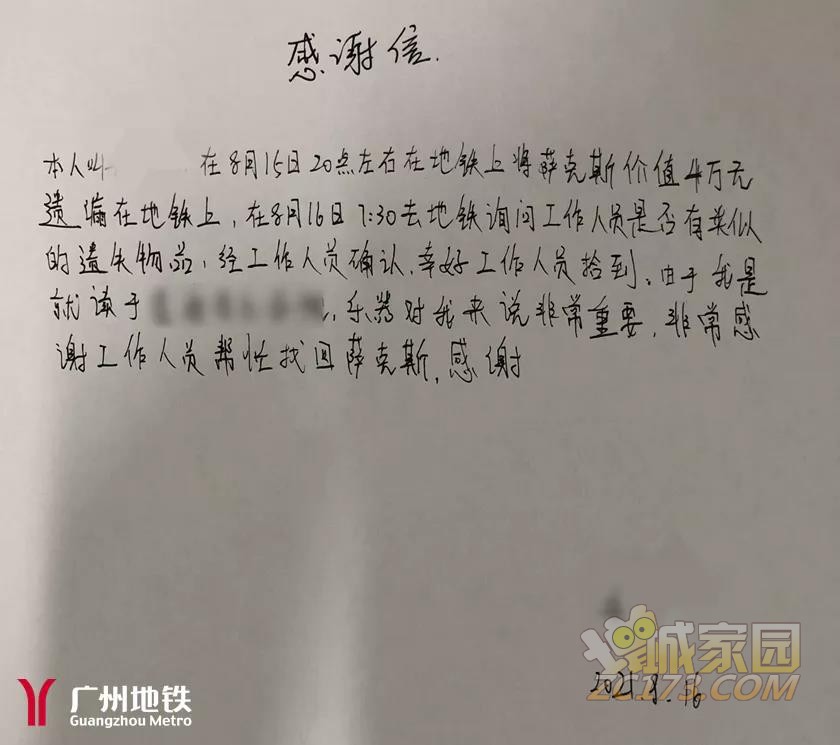 感谢信.
本人叫 在8月15日20点左右在地铁上将萨克斯价值4万元
遗漏在地铁上,在8月16日7:30去地铁询问工作人员是否有类似
的遗失物品,经工作人员确认,幸好工作人员拾到、由于我是
就读于 ,乐器对我来说非常重要,非常感
谢工作人员帮忙找回萨克斯,感谢
2021.8.16
广州地铁
Guangzhou Metro
诚家园
ZC173.COM